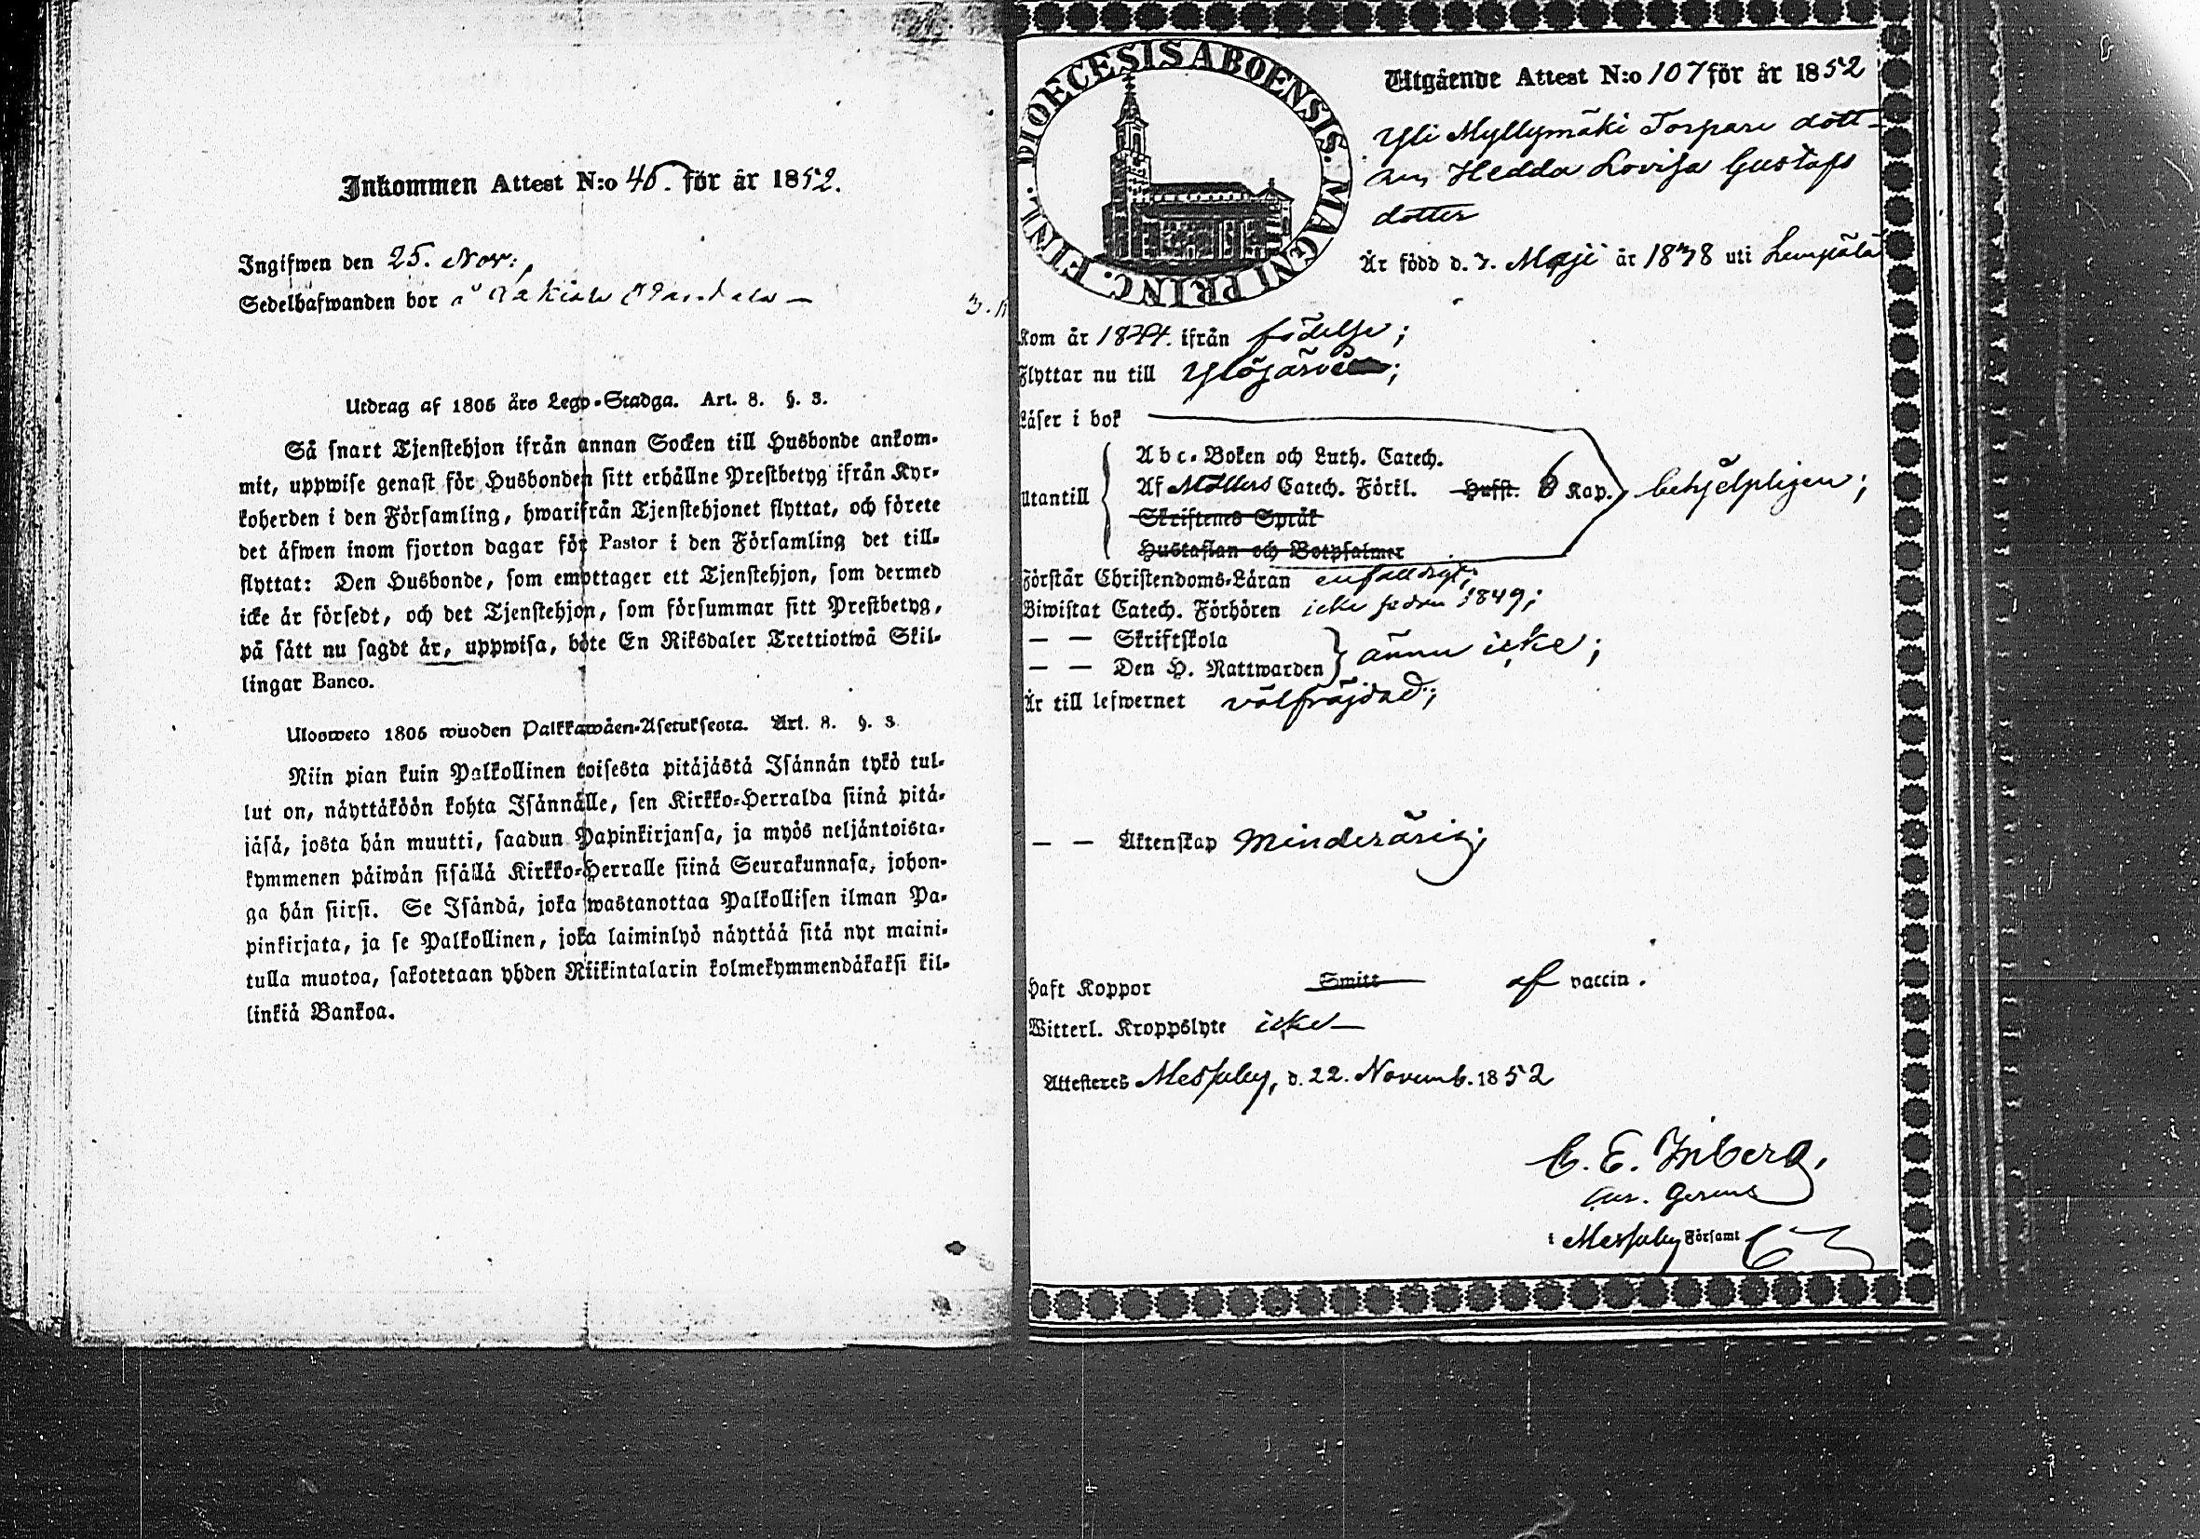 Inkommen Attest N:o 46. för år 1852.
Ingifwen den 25. Nov:
Sedelhafwanden bor å
Utdrag af 1805 års Lego-Stadga. Art. 8. §. 3.
Så snart Tjenstehjon ifrån annan Socken till Husbonde ankom-
mit, uppwise genast för Husbonden sitt erhållne Prestbetyg ifrån Kyr-
koherden i den Församling, hwarifrån Tjenstehjonet flyttat, och förete
det äfwen inom fjorton dagar för Pastor i den Församling det till-
flyttat: Den Husbonde, som emottager ett Tjenstehjon, som dermed
icke är försedt, och det Tjenstehjon, som försummar sitt Prestbetyg,
på sätt nu sagdt är, uppwisa, böte En Riksdaler Trettiotwå Skil-
lingar Banco.
Ulosweto 1805 wuoden Palkkawäen-Asetuksesta. Art. 8. §. 3
Niin pian kuin Palkollinen toisesta pitäjästä Isännän tykö tul-
lut on, näyttäköön kohta Isännälle, sen Kirkko-Herralda siinä pitä-
jäsä, josta hän muutti, saadun Papinkirjansa, ja myös neljäntoista-
kymmenen päiwän sisällä Kirkko-Herralle siinä Seurakunnasa, johon-
ga hän siirsi. Se Isändä, joka wastanottaa Palkollisen ilman Pa-
pinkirjata, ja se Palkollinen, joka laiminlyö näyttää sitä nyt maini-
tulla muotoa, sakotetaan yhden Riikintalarin kolmekymmendäkaksi kil-
linkiä Bankoa.
DIOECESIS ABOENSIS. MAGNI PRINC. FINL.
Utgående Attest N:o 107 för år 1852
Yli Myllymäki Torpare dott-
ren Hedda Lovisa Gustafs
dotter
Är född d. 7. Maji år 1838 uti Lempälä
Kom år 1844. ifrån födelse;
Flyttar nu till Ylöjärvi;
Läser i bok
Abc-Boken och Luth. Catech.
Utantill Af Möllers Catech. Förkl. Hufst. 6 Kap. behjelpligen;
Skriftenes Språk
Hustaflan och Botpsalmer
Förstår Christendoms-Läran enfaldigt;
Biwistat Catech. Förhören icke sedan 1849;
— — Skriftskola
— — Den H. Nattwarden ännu icke;
Är till lefwernet välfräjdad;
— — Äktenskap Minderårig;
Haft Koppor Smitt af vaccin.
Witterl. Kroppslyte icke —
Attesteres Messuby, d. 22. Novemb. 1852
C. E. Inberg,
Cur. Gerens
i Messuby Församl